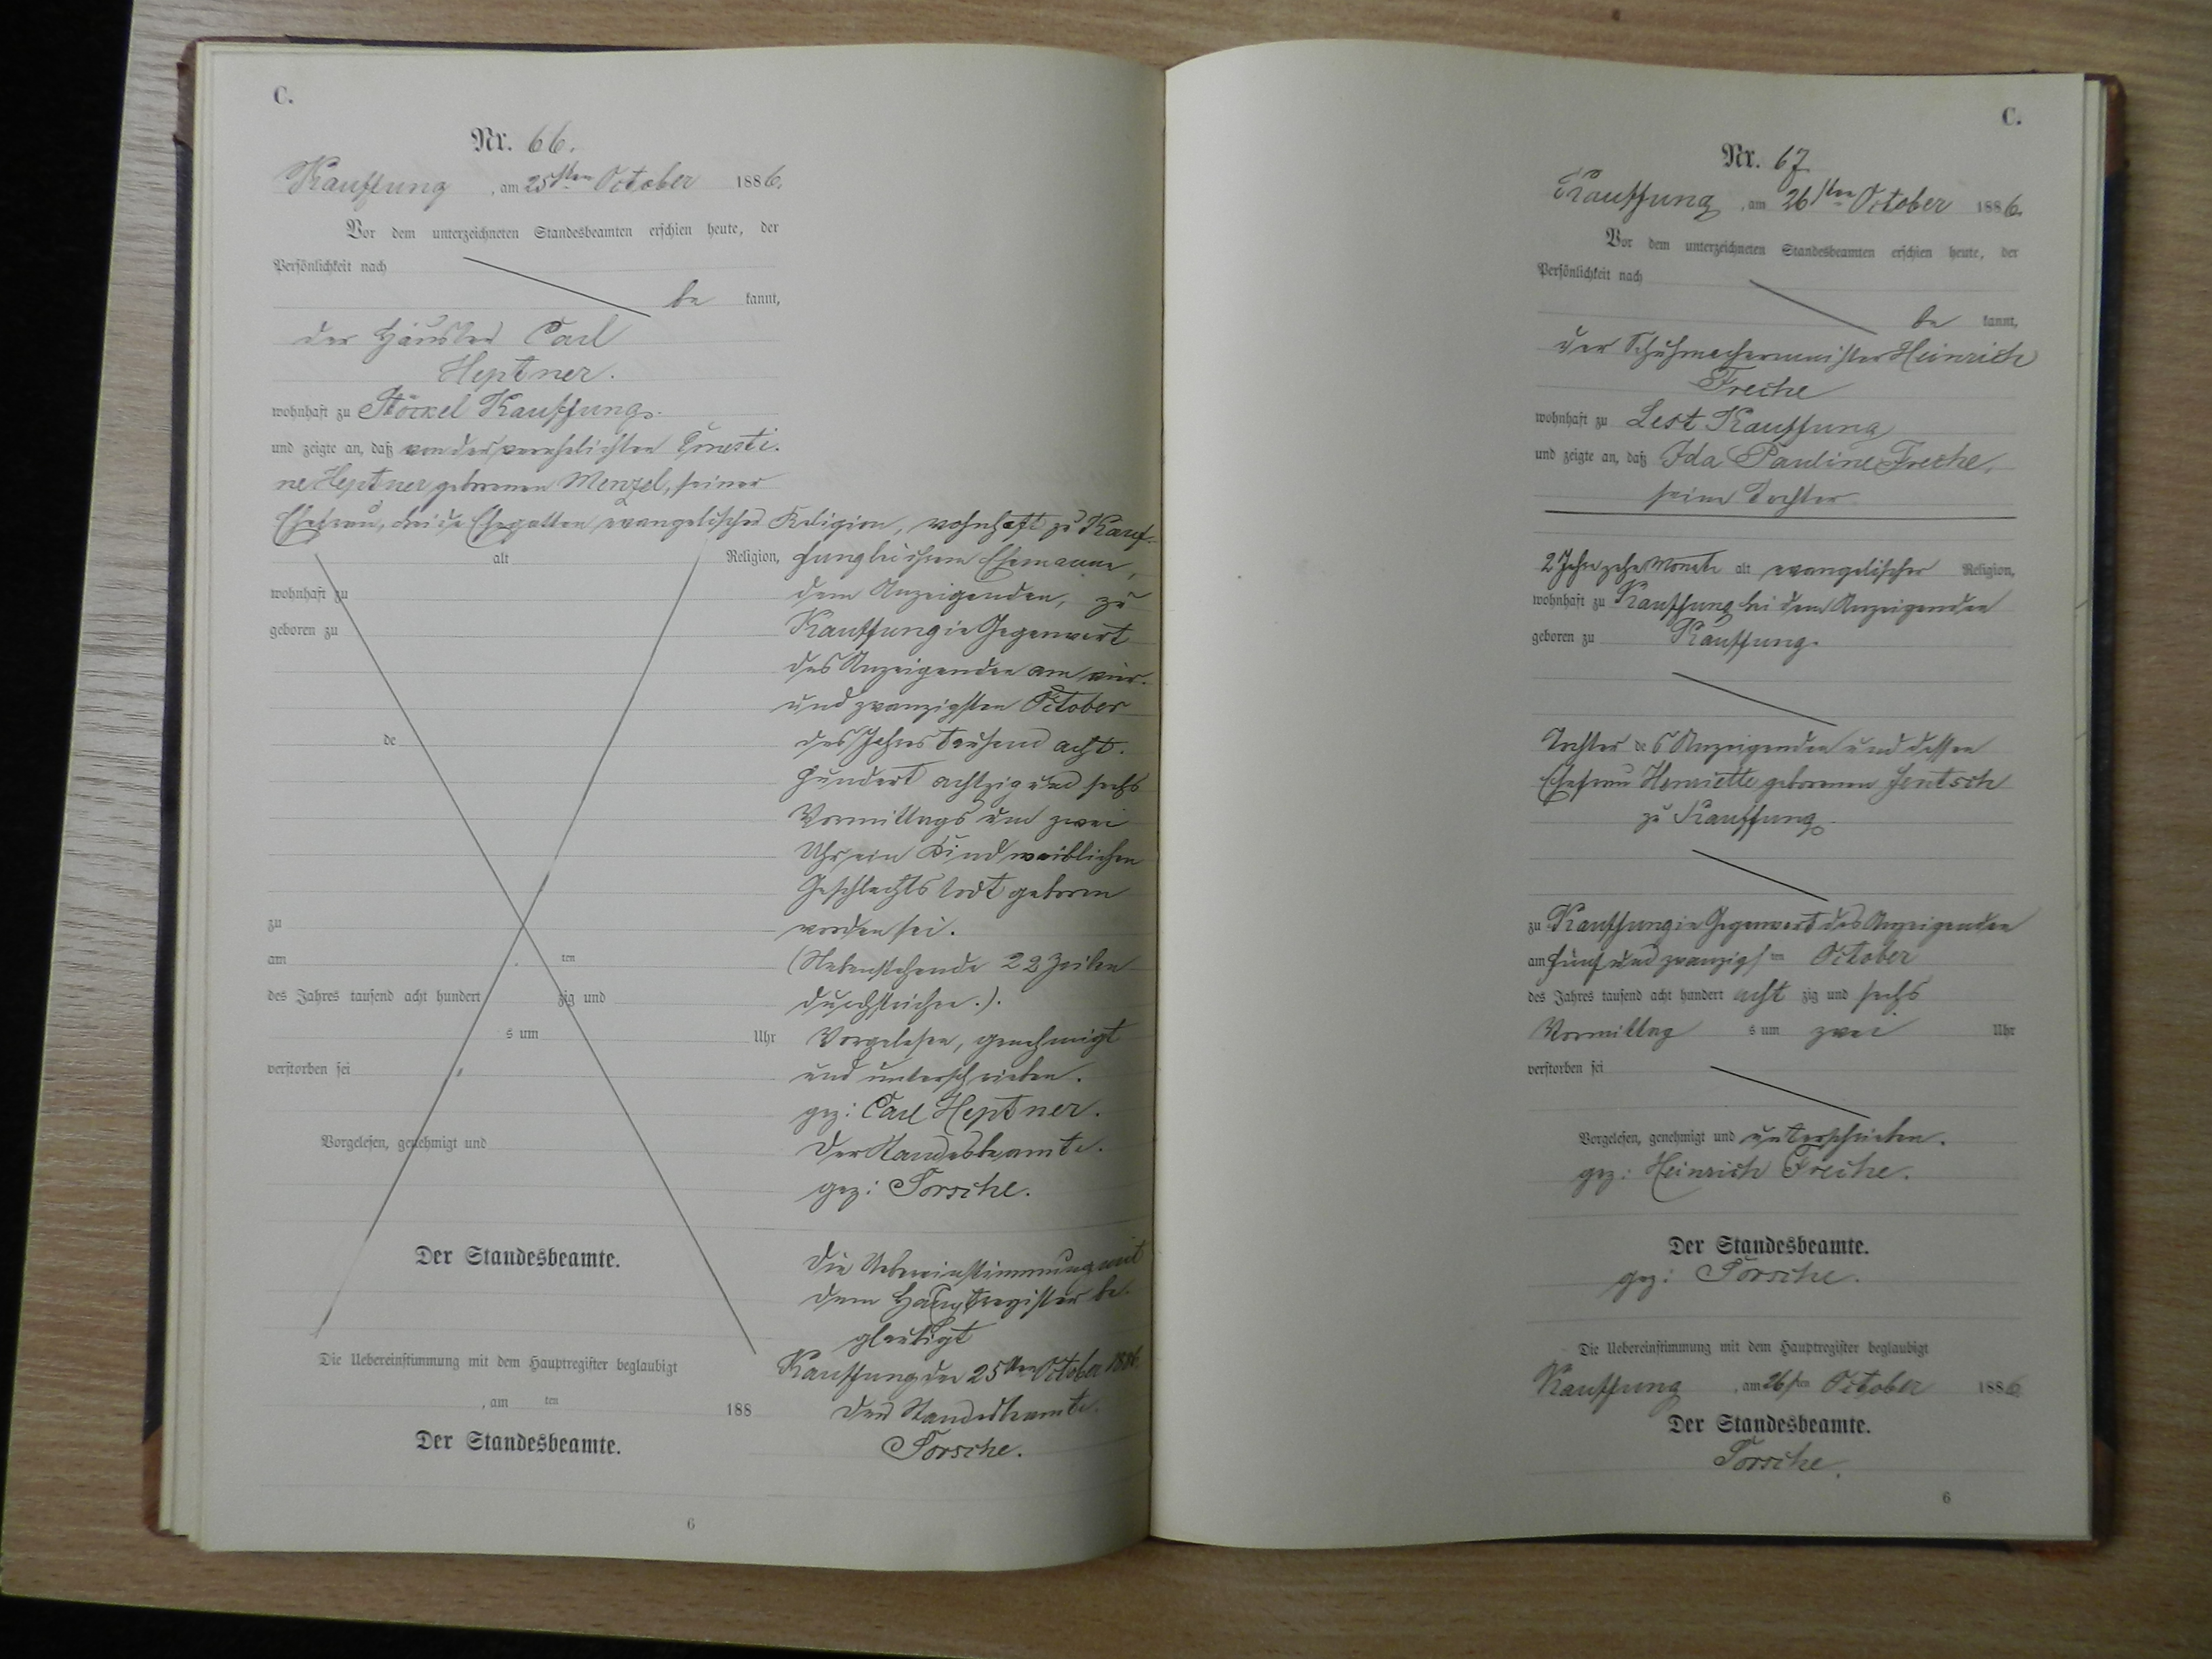 C.
Nr. 66.
Kauffung, am 25sten October 1886.
Vor dem unterzeichneten Standesbeamten erschien heute, der
Persönlichkeit nach
be kannt,
der Häusler Carl
Heptner.
wohnhaft zu Stöckel Kauffung.
und zeigte an, daß von der verehelichten Ernesti-
ne Heptner geborenen Menzel, seiner
Ehefrau, beide Ehegatten evangelischer Religion, wohnhaft zu Kauf-
alt Religion,
wohnhaft zu
geboren zu
de
zu
am ten
des Jahres tausend acht hundert zig und
s um Uhr
verstorben sei
Vorgelesen, genehmigt und
Der Standesbeamte.
Die Uebereinstimmung mit dem Hauptregister beglaubigt
, am ten 188
Der Standesbeamte.
fung bei ihrem Ehemanne,
dem Anzeigenden, zu
Kauffung in Gegenwart
des Anzeigenden am vier-
und zwanzigsten October
des Jahres tausend acht-
hundert achtzig und sechs
Vormittags um zwei
Uhr ein Kind weiblichen
Geschlechts todt geboren
worden sei.
(Nebenstehende 22 Zeilen
durchstrichen.).
Vorgelesen, genehmigt
und unterschrieben.
gez: Carl Heptner.
Der Standesbeamte.
gez: Torsche.
Die Uebereinstimmung mit
dem Hauptregister be-
glaubigt
Kauffung den 25sten October 1886.
Der Standesbeamte.
Torsche.
6
C.
Nr. 67
Kauffung, am 26sten October 1886.
Vor dem unterzeichneten Standesbeamten erschien heute, der
Persönlichkeit nach
be kannt,
der Schuhmachermeister Heinrich
Freche
wohnhaft zu Lest Kauffung
und zeigte an, daß Ida Pauline Freche,
seine Tochter
2 Jahre zehn Monate alt evangelischer Religion,
wohnhaft zu Kauffung bei dem Anzeigenden
geboren zu Kauffung.
Tochter des Anzeigenden und dessen
Ehefrau Henriette geborenen Jentsch
zu Kauffung.
zu Kauffung in Gegenwart des Anzeigenden
am fünf und zwanzigsten October
des Jahres tausend acht hundert acht zig und sechs
Vormittag s um zwei Uhr
verstorben sei
Vorgelesen, genehmigt und unterschrieben.
gez: Heinrich Freche.
Der Standesbeamte.
gez: Torsche.
Die Uebereinstimmung mit dem Hauptregister beglaubigt
Kauffung, am 26sten October 1886
Der Standesbeamte.
Torsche.
6